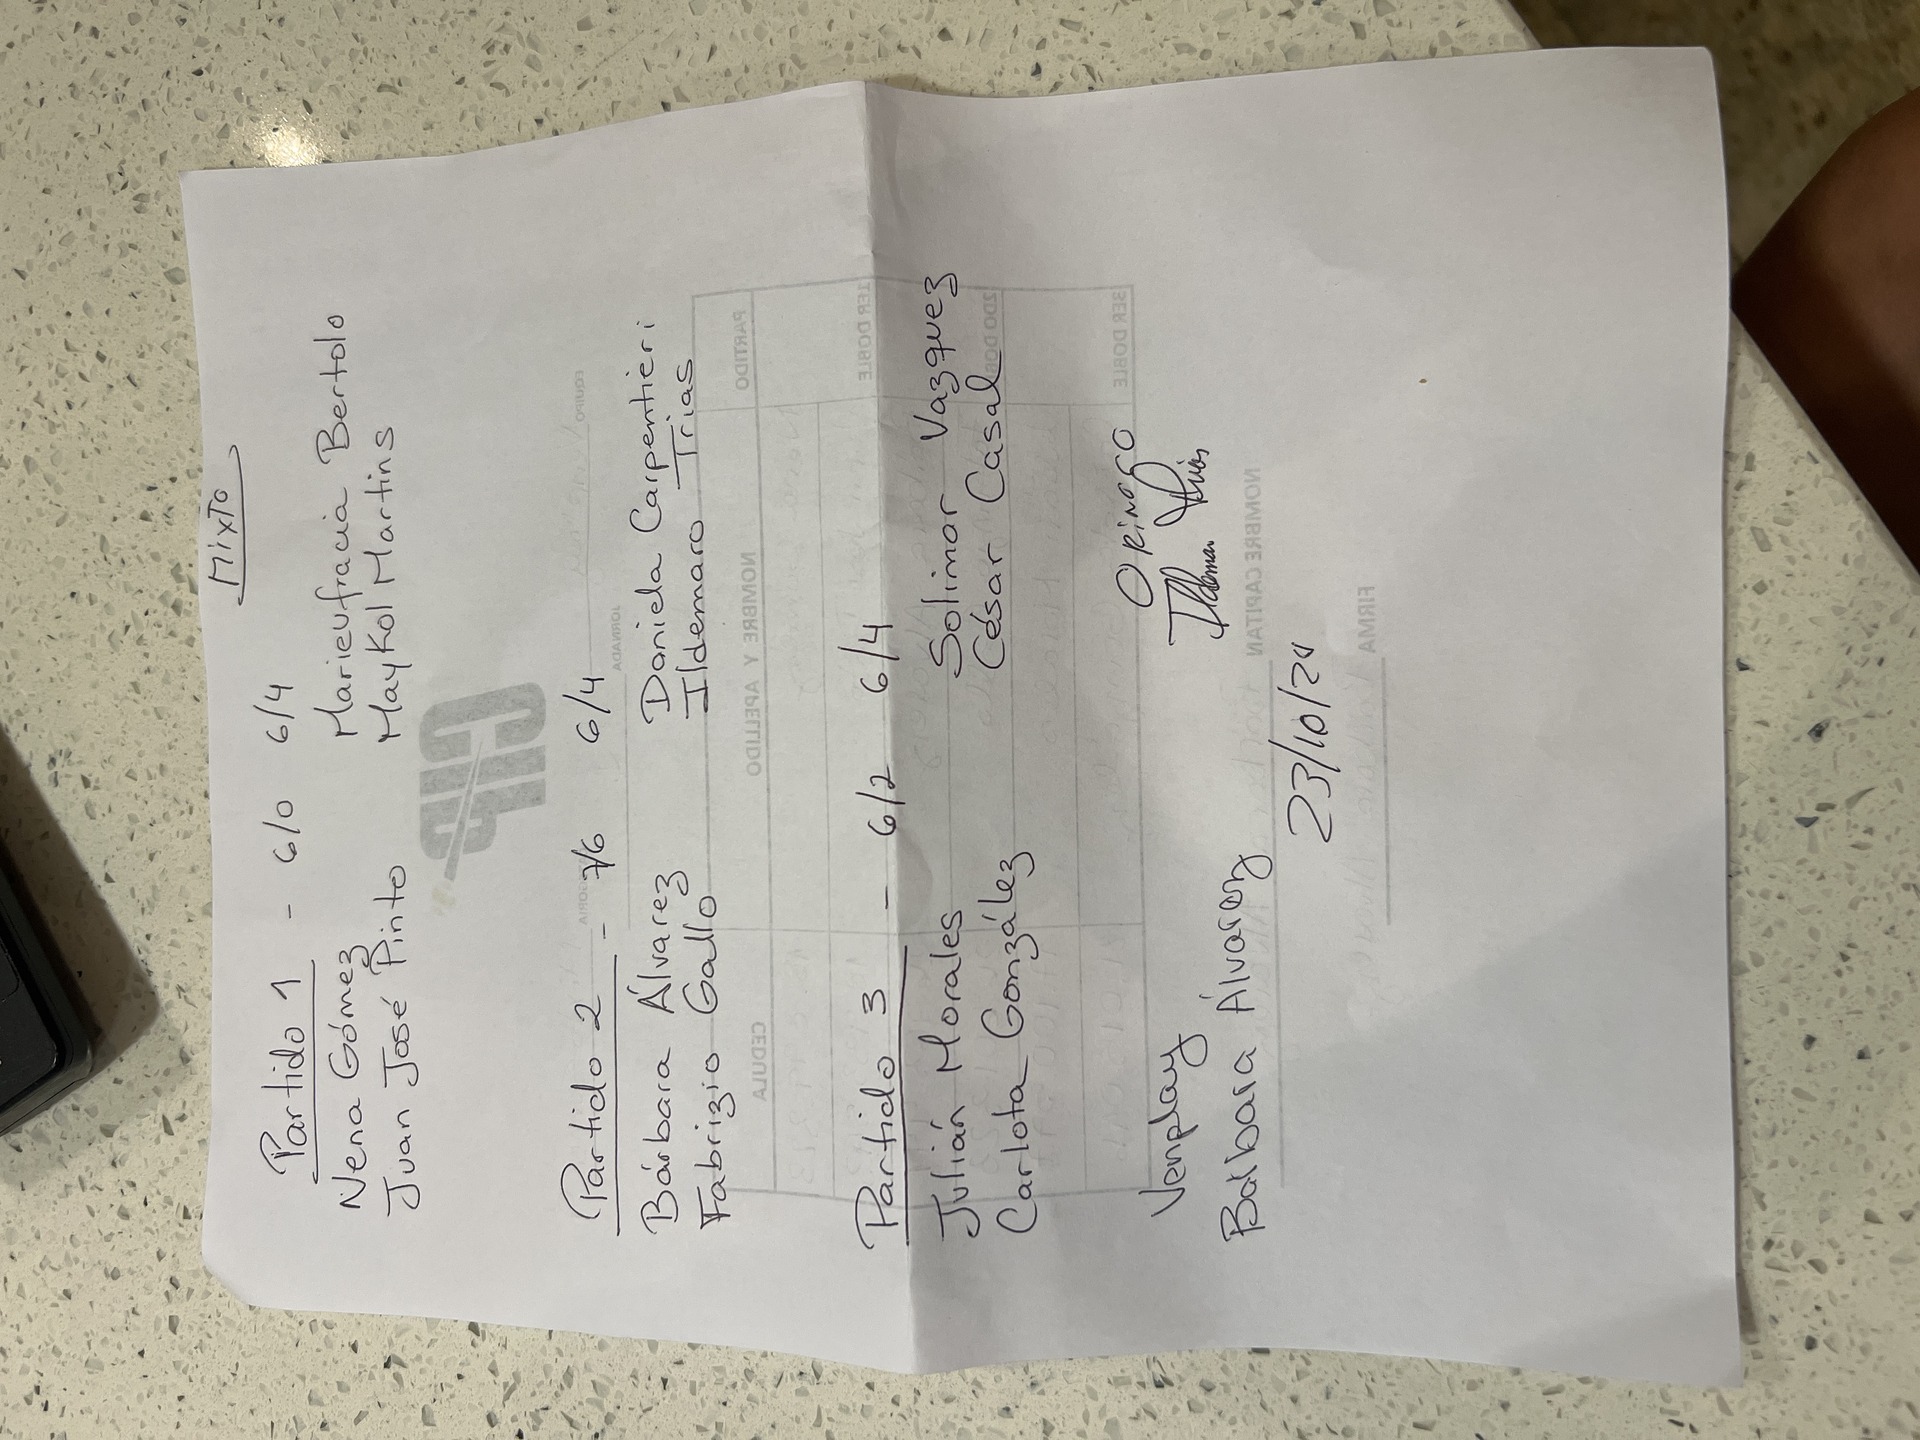 Mixto
Partido 1 - 6/0 6/4
Nena Gómez Marieufracia Bertolo
Juan José Pinto Maykol Martins
Partido 2 - 7/6 6/4
Bárbara Álvarez Daniela Carpentieri
Fabrizio Gallo Ildemaro Trias
Partido 3 - 6/2 6/4
Julián Morales Solimar Vazquez
Carlota González César Casal
Venplay Orinoco
Barbara Álvarez Ildemaro Trias
23/10/24
CIP
EQUIPO
JORNADA
PARTIDO NOMBRE Y APELLIDO CEDULA
1ER DOBLE
2DO DOBLE
3ER DOBLE
NOMBRE CAPITAN
FIRMA